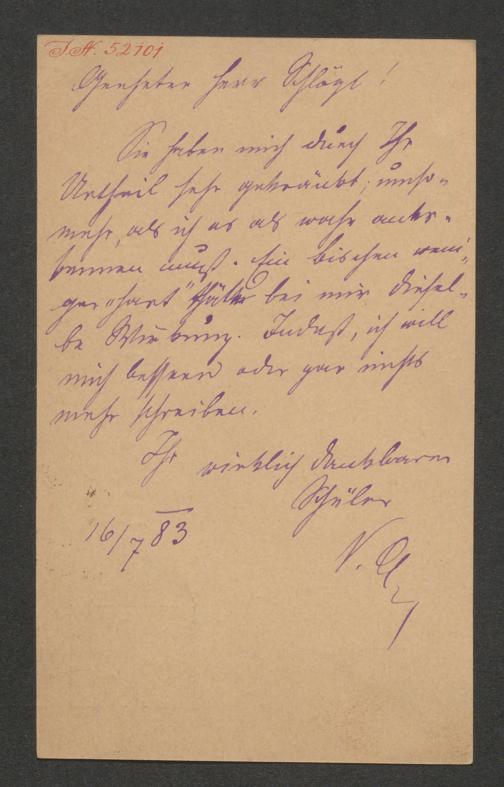 I.N. 52101
Geehrter Herr Schlögl!
Sie haben mich durch Ihr
Urtheil sehr gekränkt, umso-
mehr, als ich es als wahr aner-
kennen muß. Ein bischen weni-
ger „hart" hätte bei mir diesel-
be Wirkung. Indeß, ich will
mich bessern oder gar nichts
mehr schreiben.
Ihr wirklich dankbarer
Schüler
16/7 83